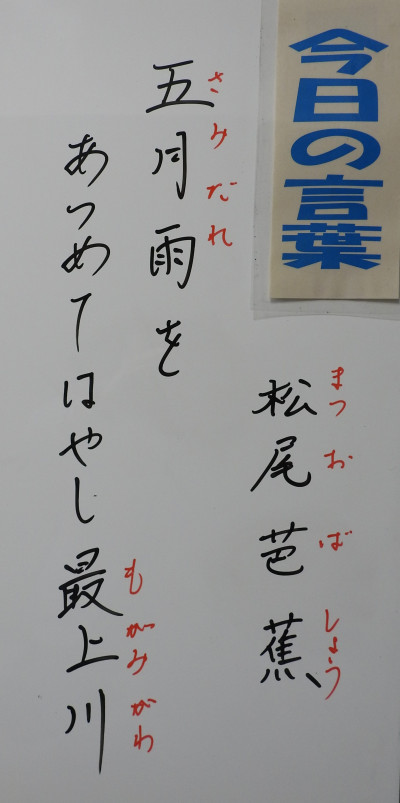 今日の言葉
まつおばしょう
松尾芭蕉
さみだれ
五月雨を
あつめてはやし最上川
もがみがわ